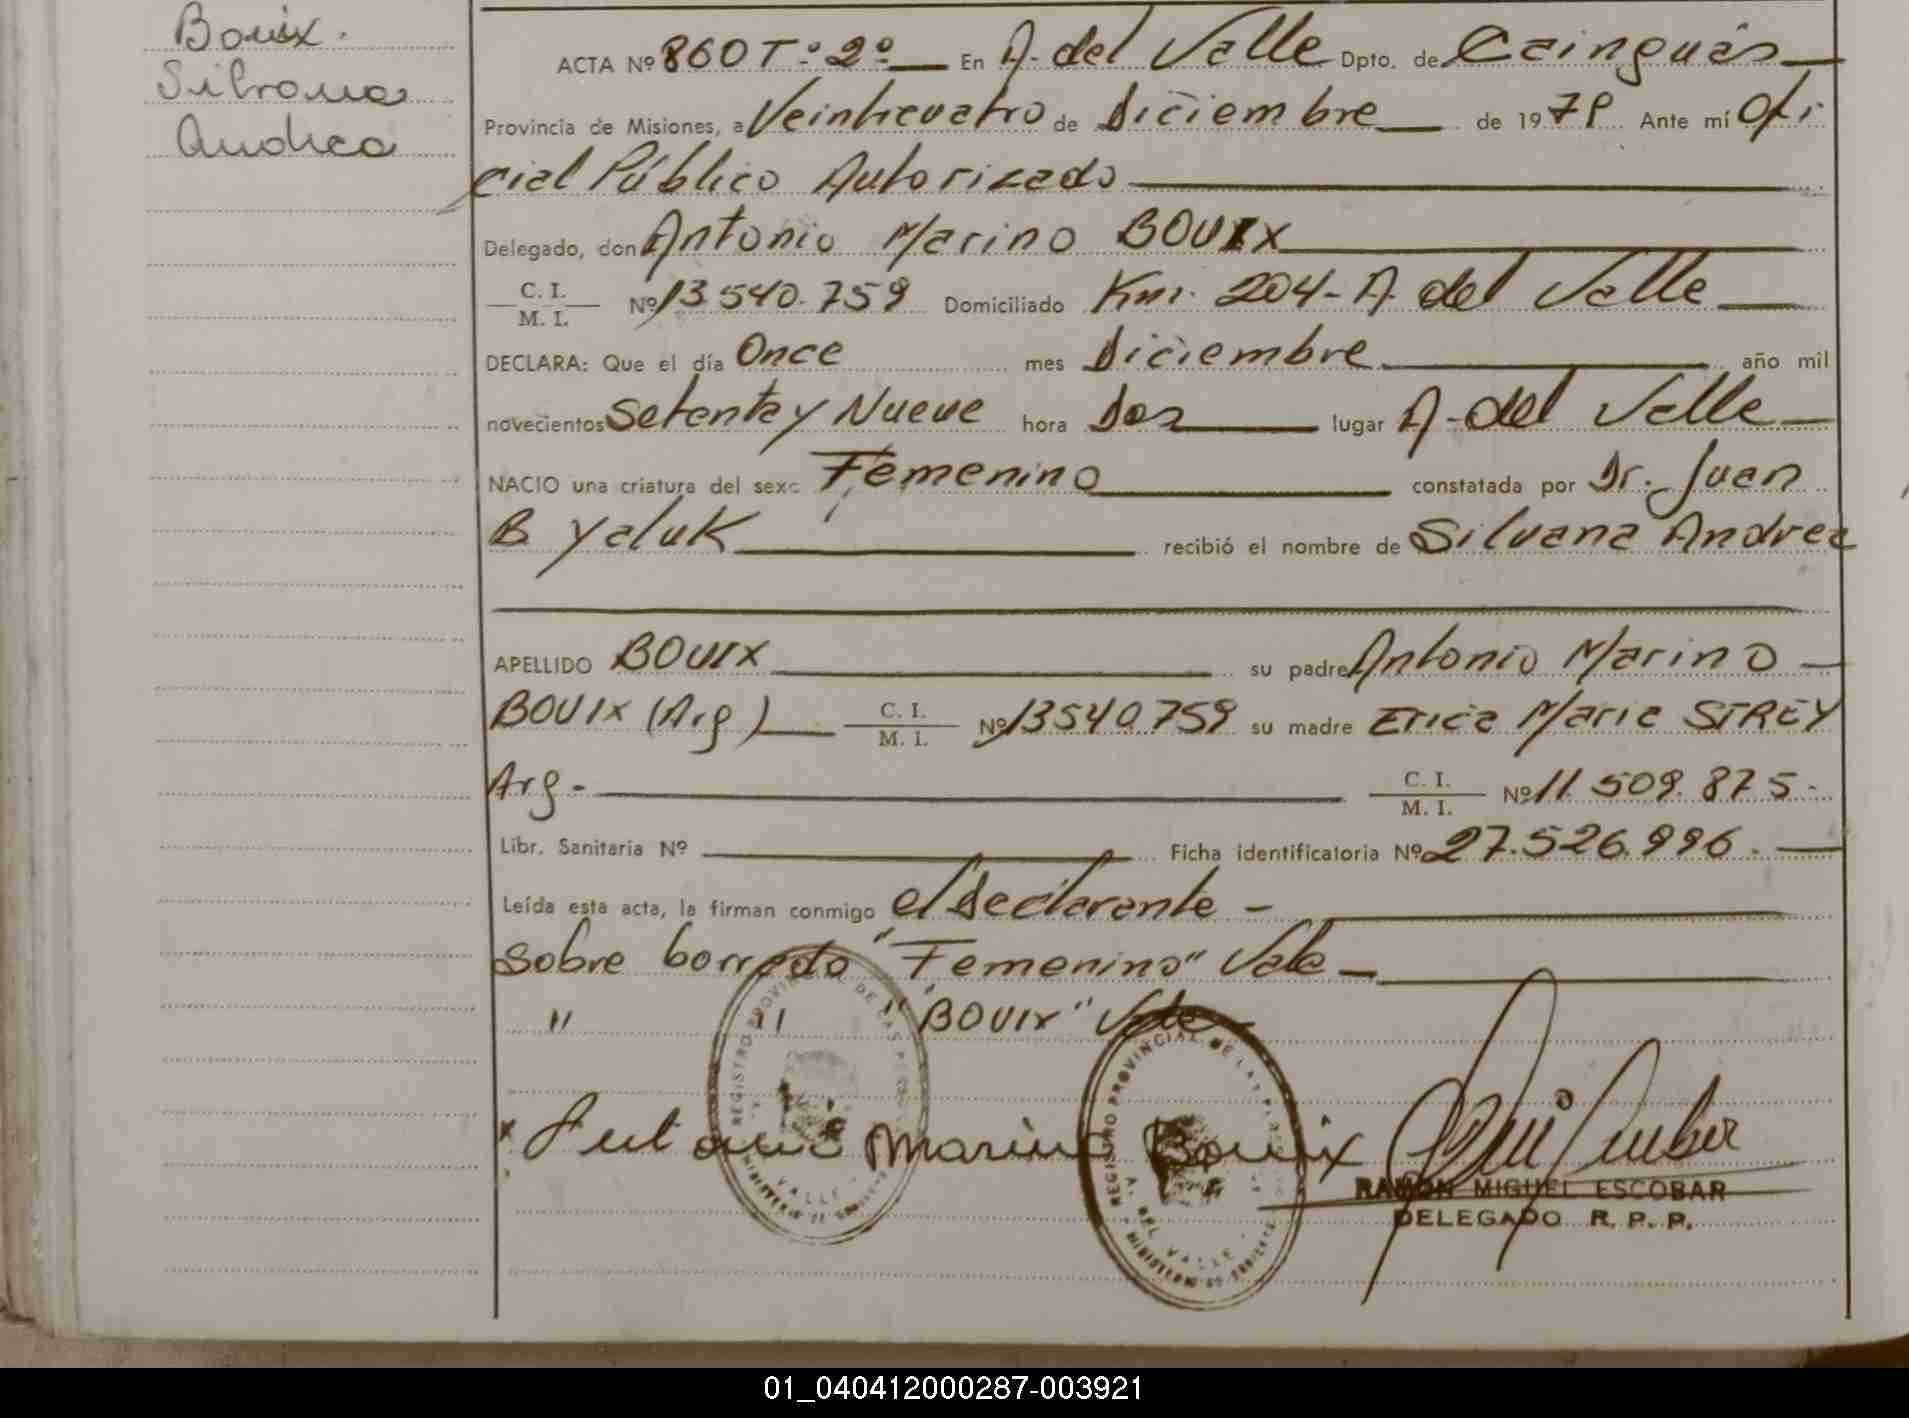 Bouix.
Silvana
Andrea
ACTA Nº 860 Tº 2º En A. del Valle Dpto. de Cainguás
Provincia de Misiones, a Veinticuatro de Diciembre de 1979. Ante mí Ofi
cial Público Autorizado
Delegado, don Antonio Marino BOUIX
C. I.
M. I. Nº 13.540.759 Domiciliado Km. 204 - A. del Valle
DECLARA: Que el día Once mes Diciembre año mil
novecientos Setenta y Nueve hora Dos lugar A. del Valle
NACIO una criatura del sexo Femenino constatada por Dr. Juan
B Yaluk recibió el nombre de Silvana Andrea
APELLIDO BOUIX su padre Antonio Marino
BOUIX (Arg) C. I.
M. I. Nº 13540.759 su madre Erica Maria STREY
Arg - C. I.
M. I. Nº 11.509.875.
Libr. Sanitaria Nº Ficha identificatoria Nº 27.526.996.
Leída esta acta, la firman conmigo el declarante -
Sobre borrado "Femenino" Vale
" " "BOUIX" Vale
x Antonio Marino Bouix
REGISTRO PROVINCIAL DE LAS
VALLE
REGISTRO PROVINCIAL DE LAS
A. DEL VALLE
RAMON MIGUEL ESCOBAR
DELEGADO R. P. P.
01_040412000287-003921